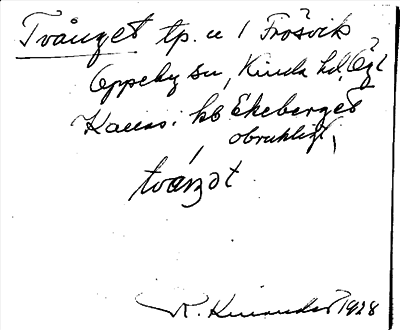 Tvånget tp. u 1 Frösvik
Oppeby sn, Kinda hd, Ögl
Kallas: kb Ekeberget
obrukligt,
tvæŋət
R. Kinander 1928